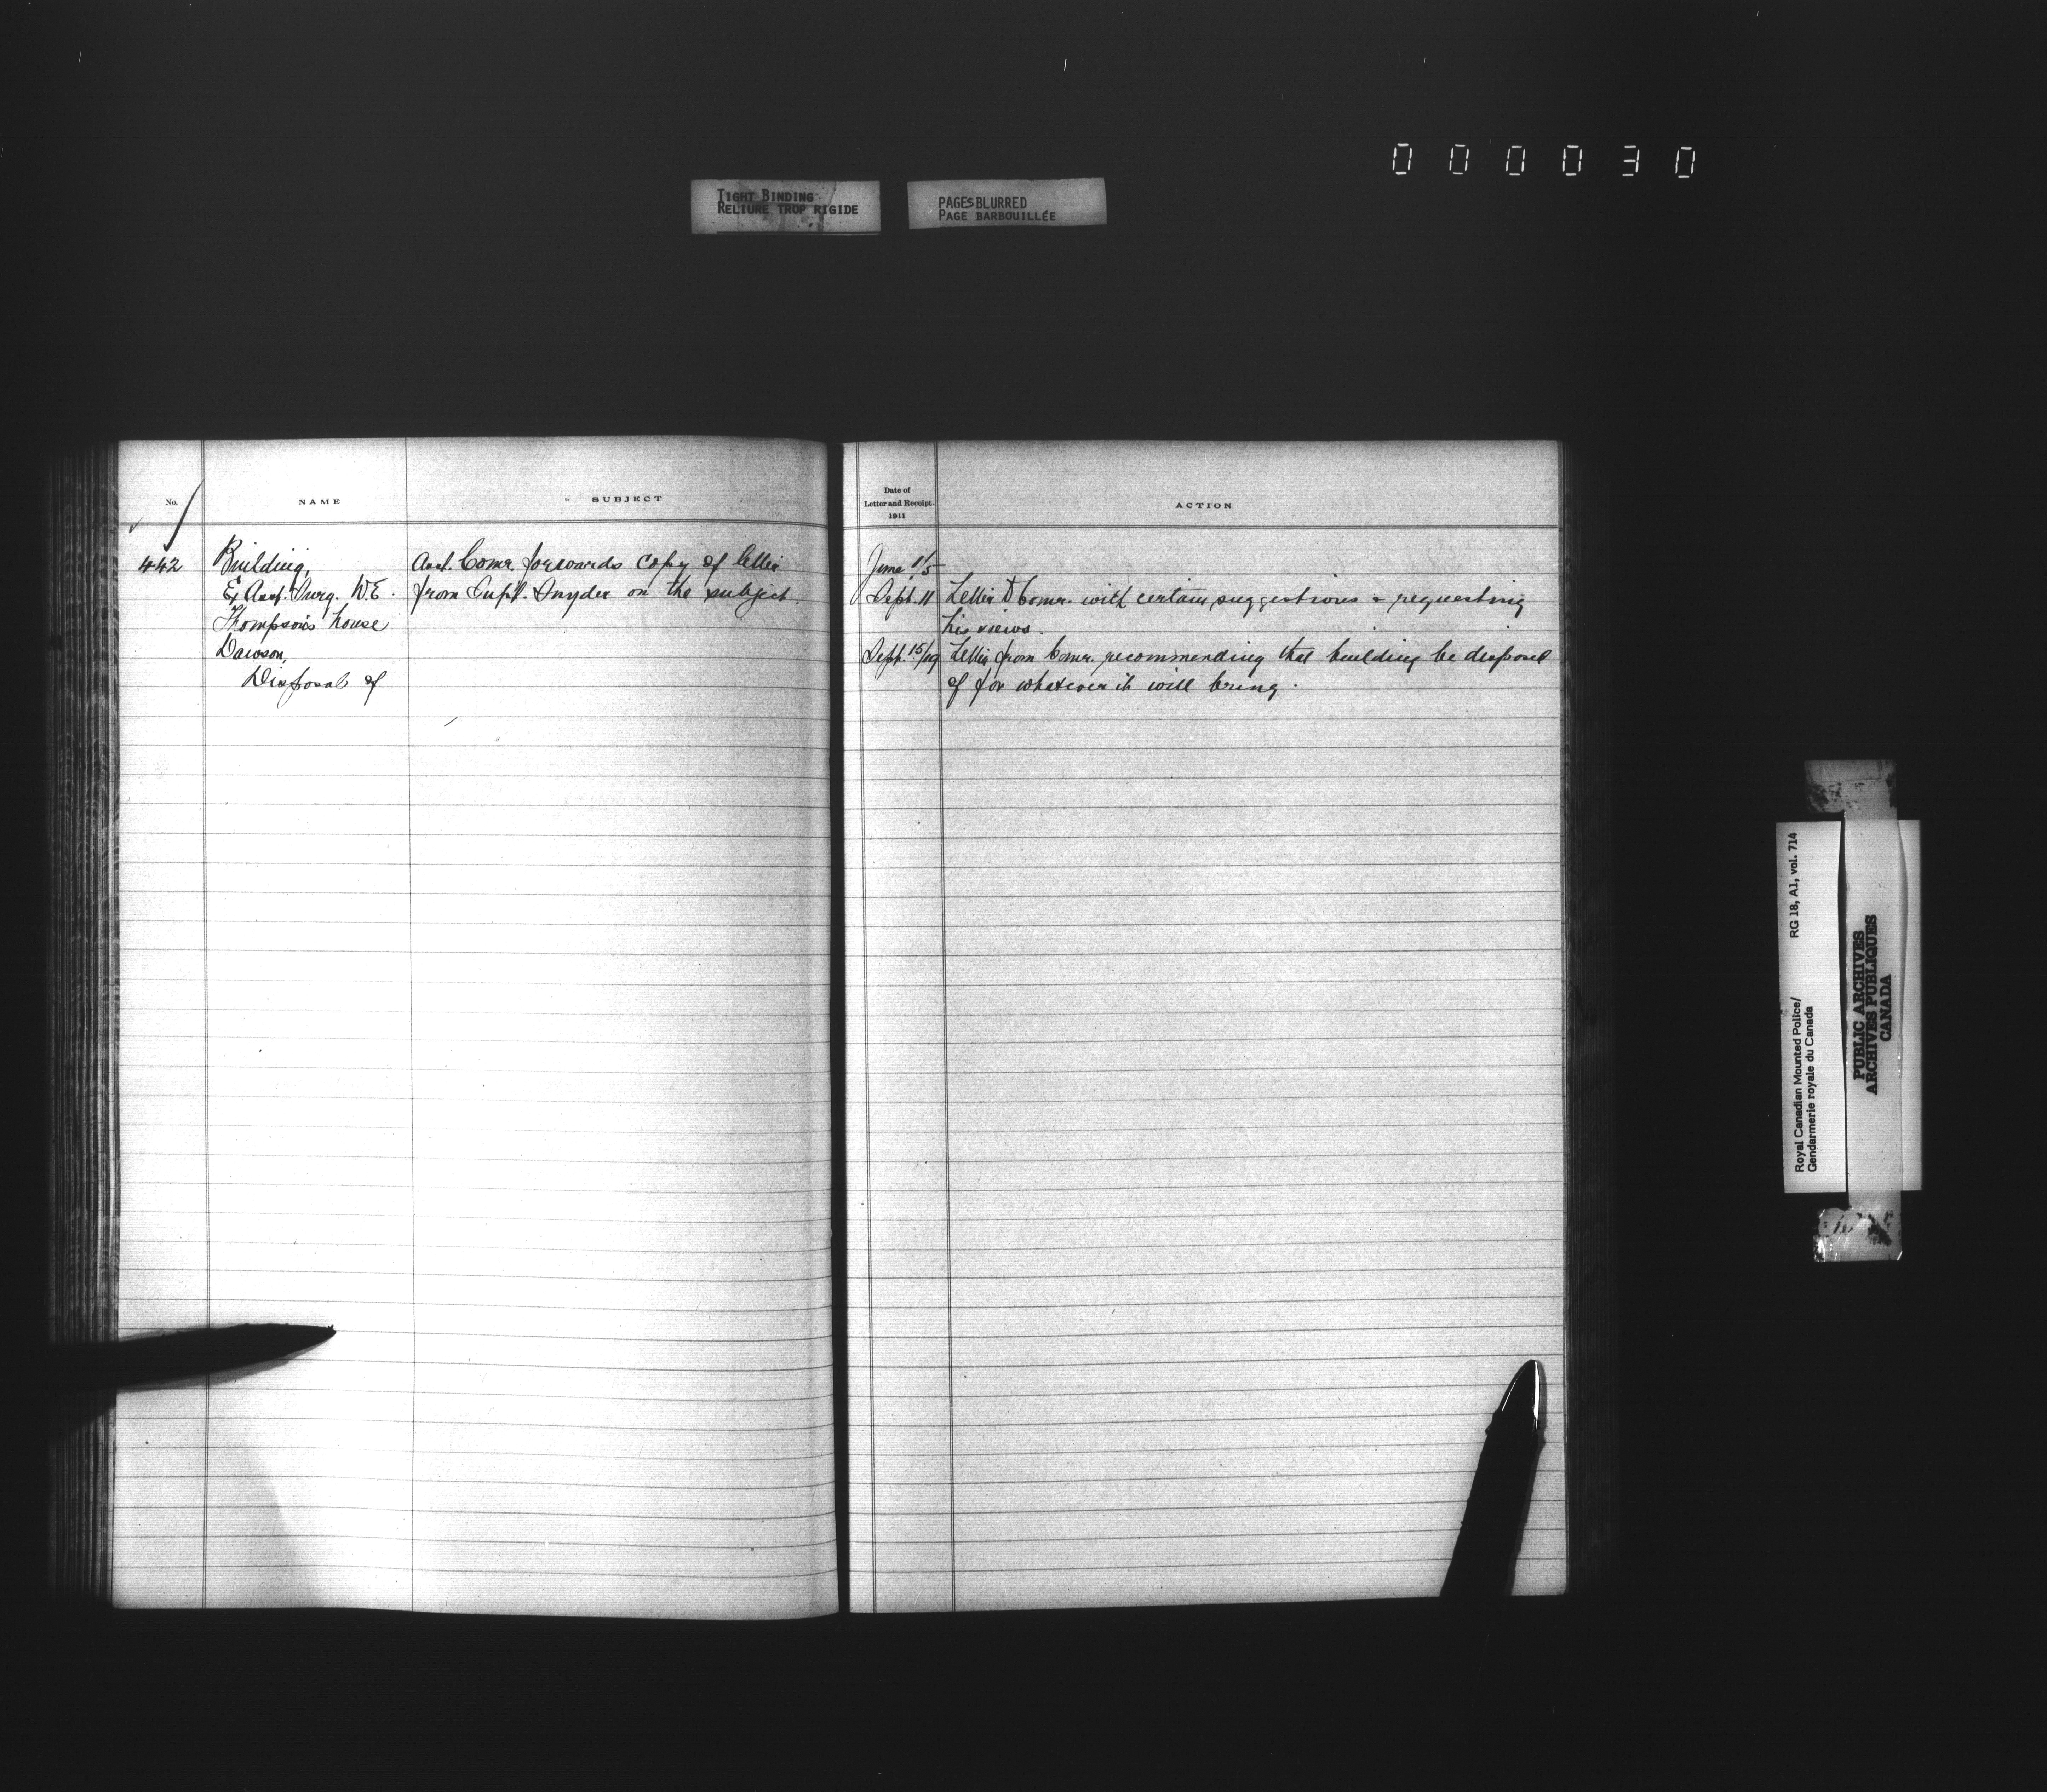 000030
TIGHT BINDING
RELIURE TROP RIGIDE
PAGES BLURRED
PAGE BARBOUILLÉE
No.
NAME
SUBJECT
442
Building,
Ex Asst. Surg. W.E.
Thompson's house
Dawson,
Disposal of
Asst. Comr. forwards copy of letter
from Supt. Snyder on the subject.
Date of
Letter and Receipt.
1911
ACTION
June 1/5
Sept. 11 Letter to Comr. with certain suggestions & requesting
his views.
Sept. 15/19 Letter from Comr. recommending that building be disposed
of for whatever it will bring.
RG 18, A1, vol. 714
Royal Canadian Mounted Police/
Gendarmerie royale du Canada
PUBLIC ARCHIVES
ARCHIVES PUBLIQUES
CANADA